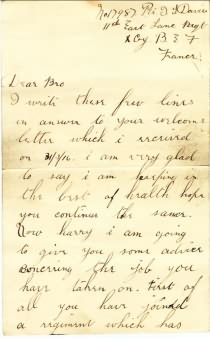 No 17987 Pte T. Davies
11th East Lanc Regt
X Coy B E F
France
Dear Bro
I write these few lines
in answer to your welcome
letter which i received
on 31/3/16. i am very glad
to say i am keeping in
the best of health hope
you continue the same.
Now harry i am going
to give you some advice
concerning the job you
have taken on. First of
all you have joined
a regiment which has